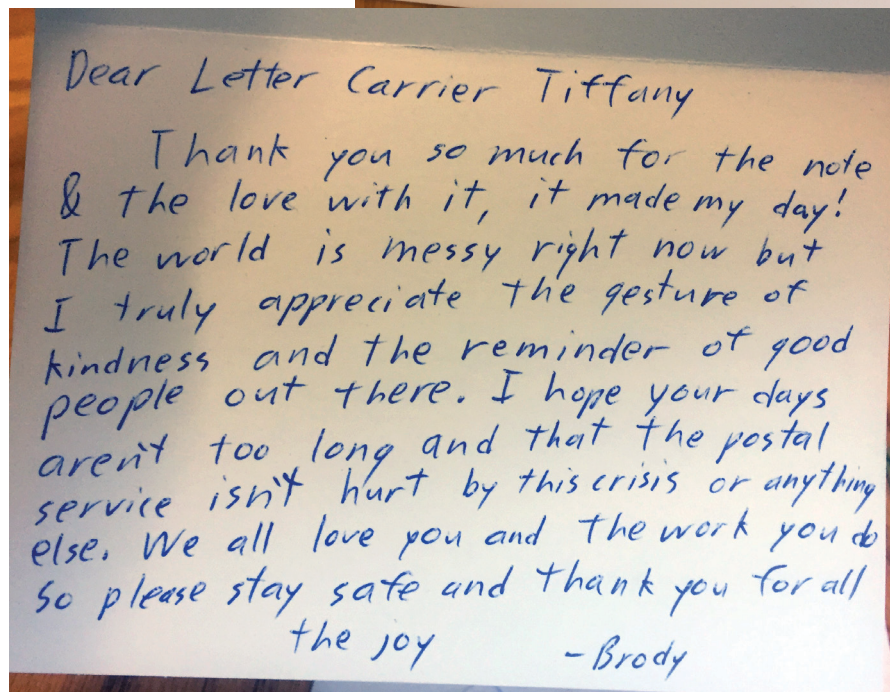 Dear Letter Carrier Tiffany
Thank you so much for the note
& the love with it, it made my day!
The world is messy right now but
I truly appreciate the gesture of
kindness and the reminder of good
people out there. I hope your days
aren't too long and that the postal
service isn't hurt by this crisis or anything
else. We all love you and the work you do
so please stay safe and thank you for all
the joy
-Brody